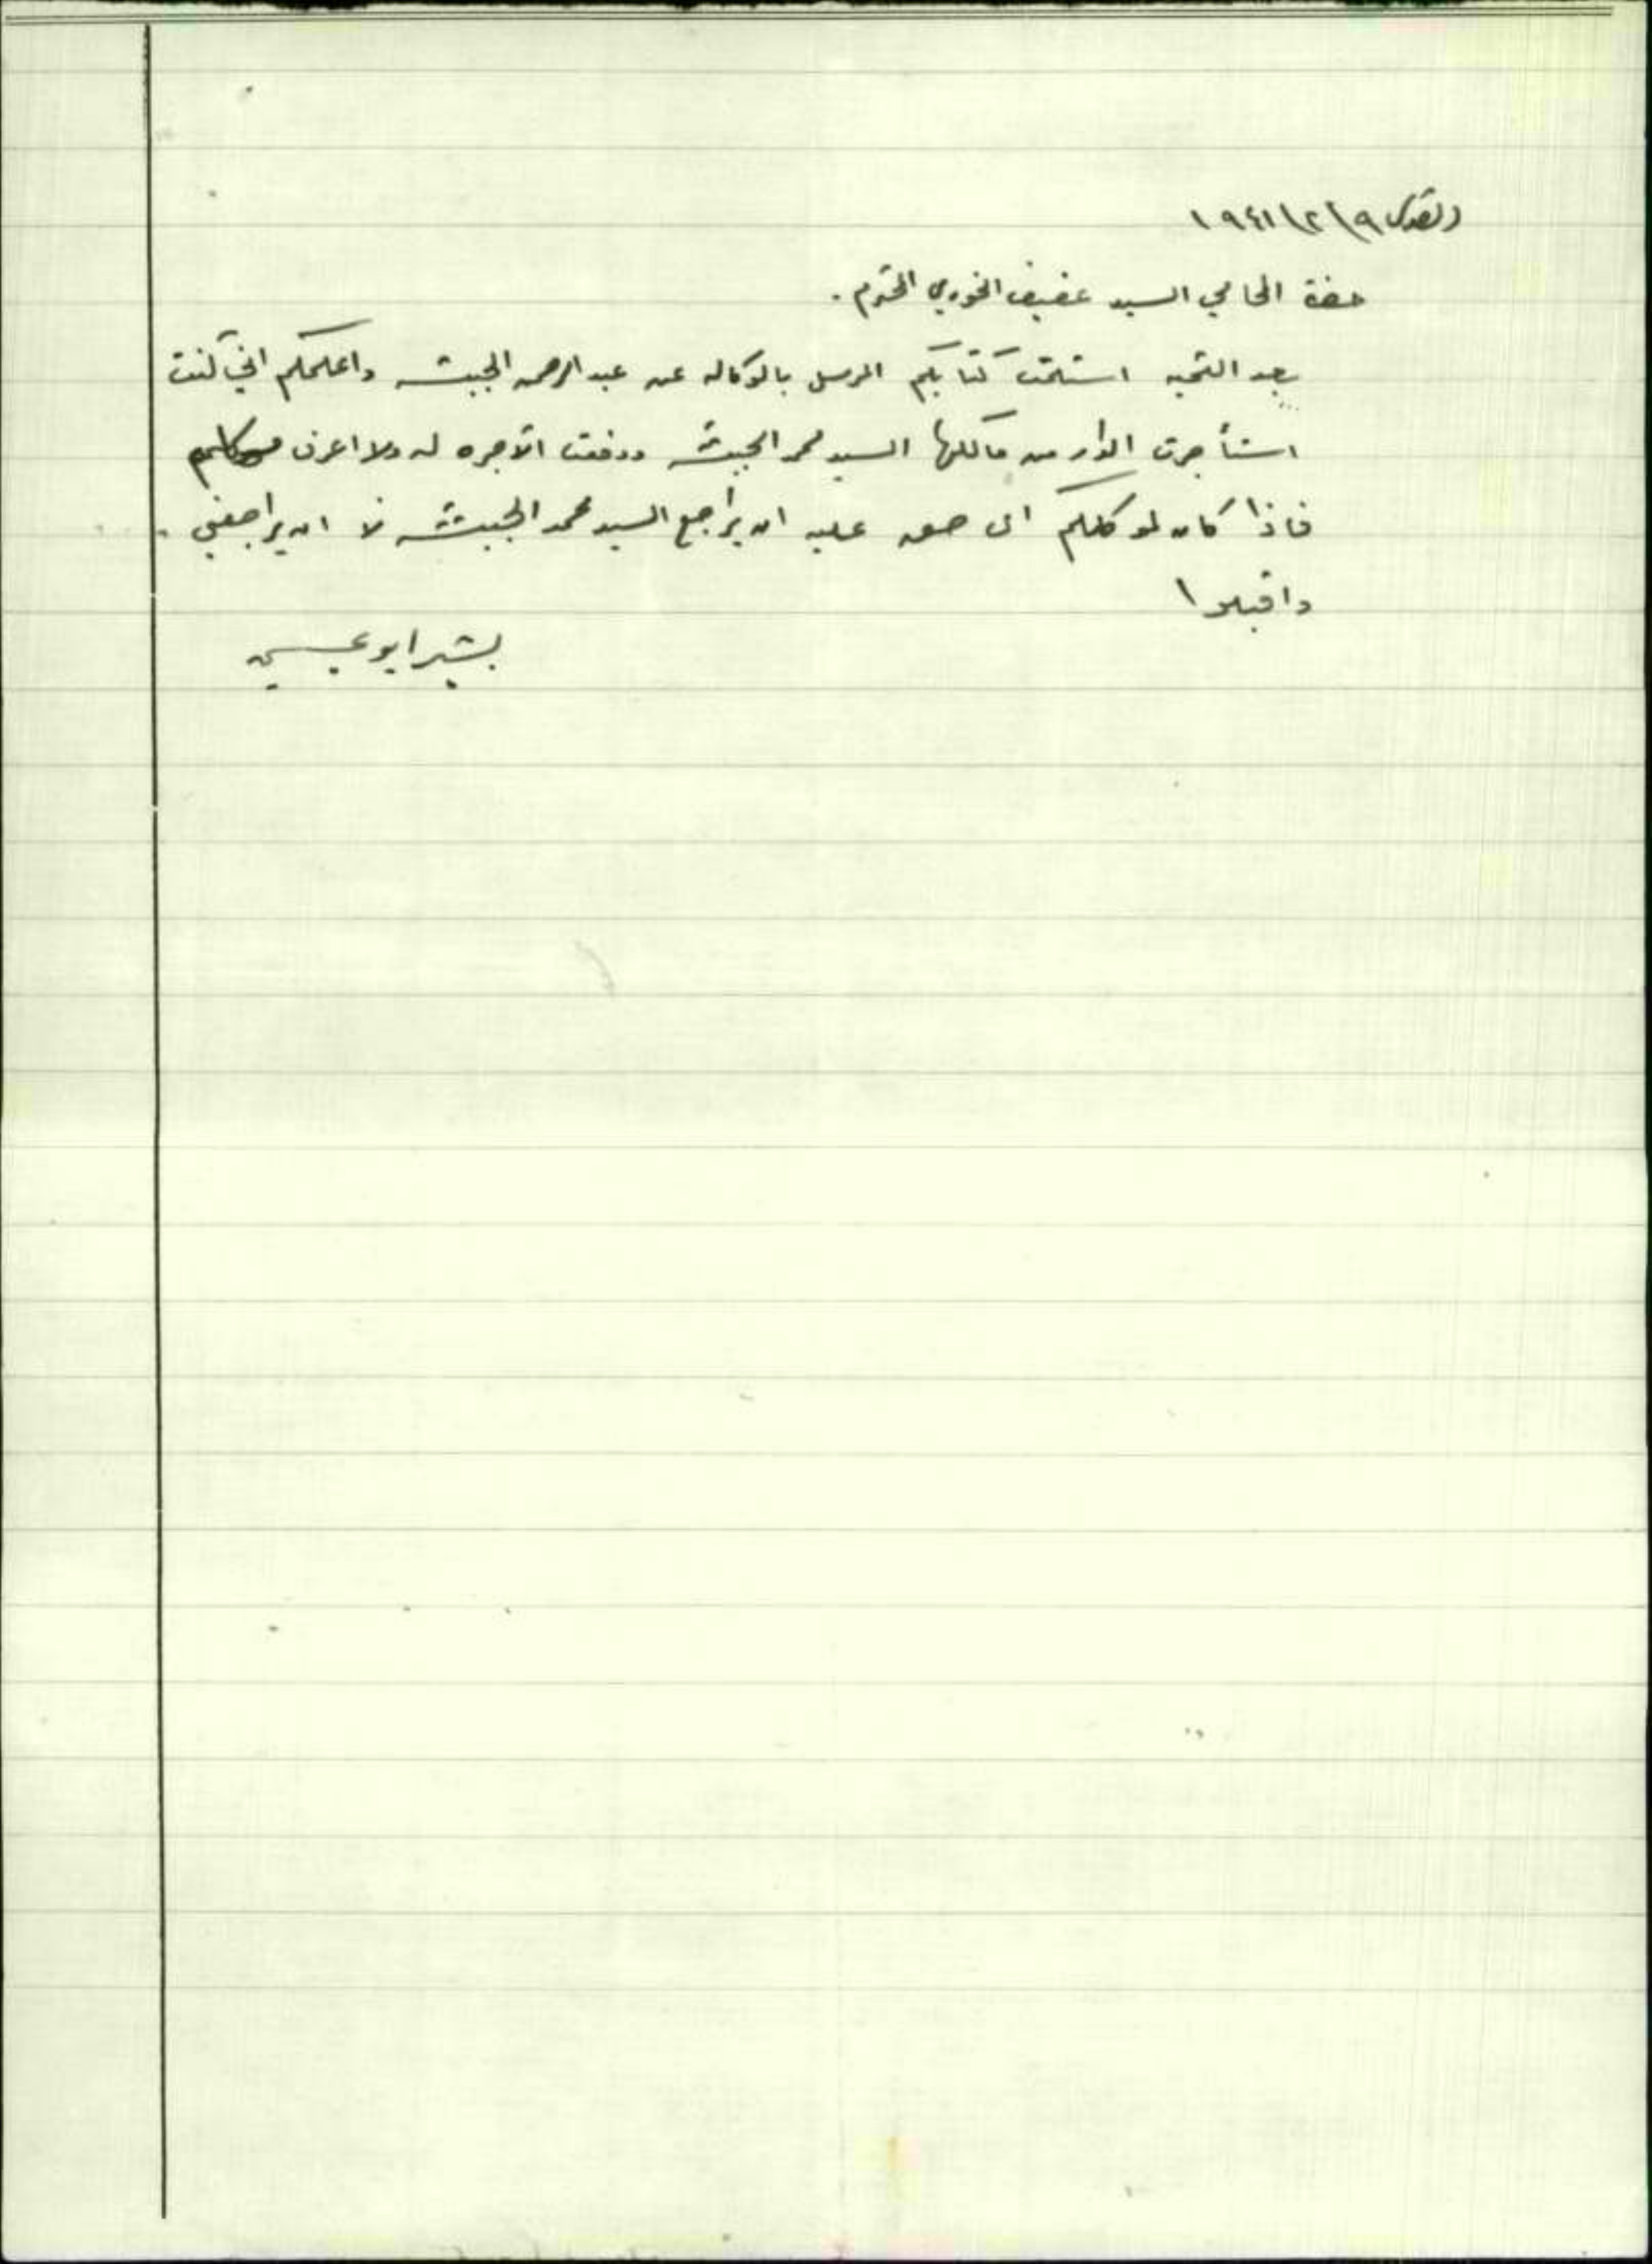 القدس ٩/٢/١٩٤١
حضرة المحامي السيد عفيف الخوري المحترم.
بعد التحيه استلمت كتابكم المرسل بالوكاله عن عبد الرحمن الجبشه واعلمكم اني كنت
استأجرت الدار من مالكها السيد محمد الجبشه ودفعت الأجره له ولا اعرف
فاذا كان لموكلكم اي حق عليه ان يراجع السيد محمد الجبشه لا ان يراجعني.
واقبلوا
بشير ابو عيسى